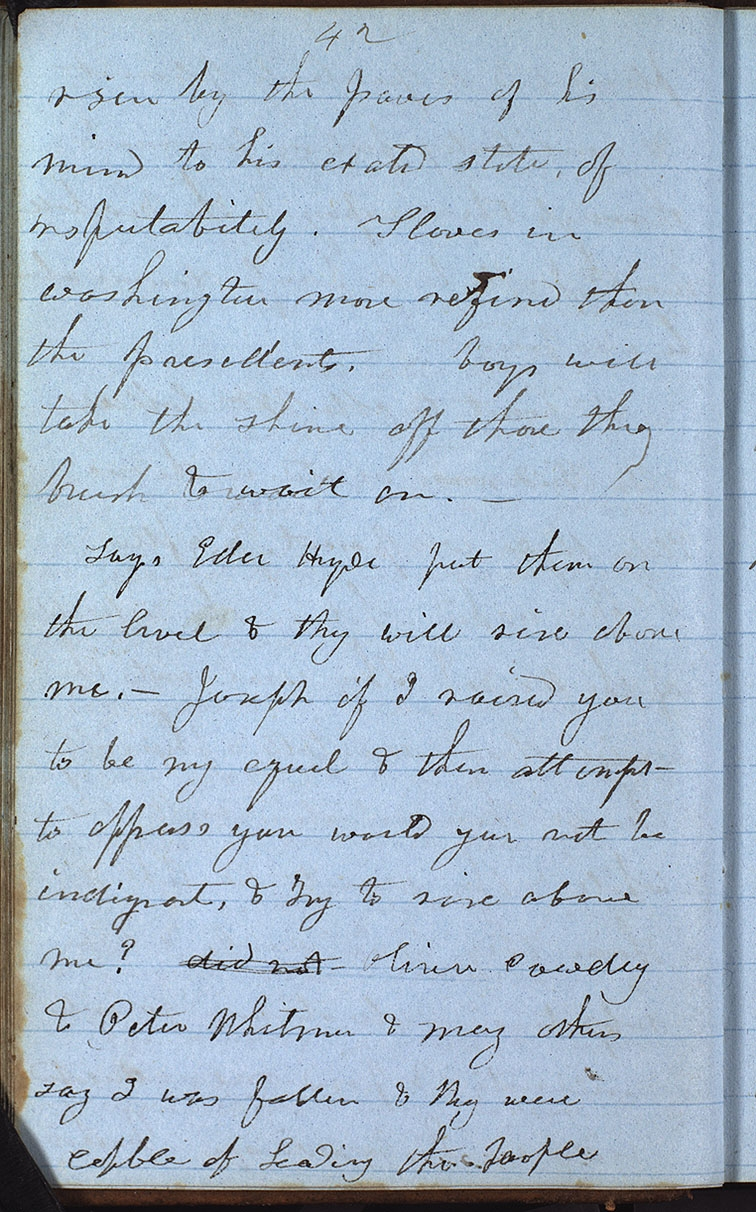 42
risen by the powers of his
mind to his exated state, of
resputability. Slaves in
washington more refind than
the presedents. boys will
take the shine off those they
brush & wait on. —
Says Elder Hyde put them on
the level & they will rise above
me. — Joseph if I raised you
to be my equel & then attempt
to oppress you would you not be
indignant, & try to rise above
me? did not Oliver Cowdey
& Peter Whitmer & many others
say I was fallen & they were
capble of Leading the People